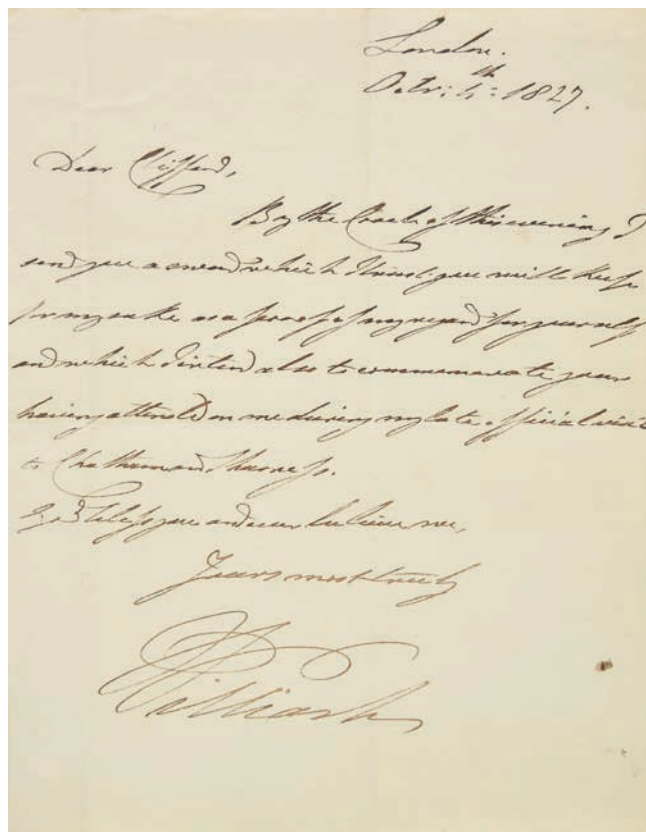 London.
Octr: 4th: 1827.
Dear Clifford,
By the Coach of this evening I
send you a sword which I trust you will keep
for my sake as a proof of my regard for yourself
and which I intend also to commemorate your
having attended on me during my late official visit
to Chatham and Sheerness.
God bless you and ever believe me,
Yours most truly
William